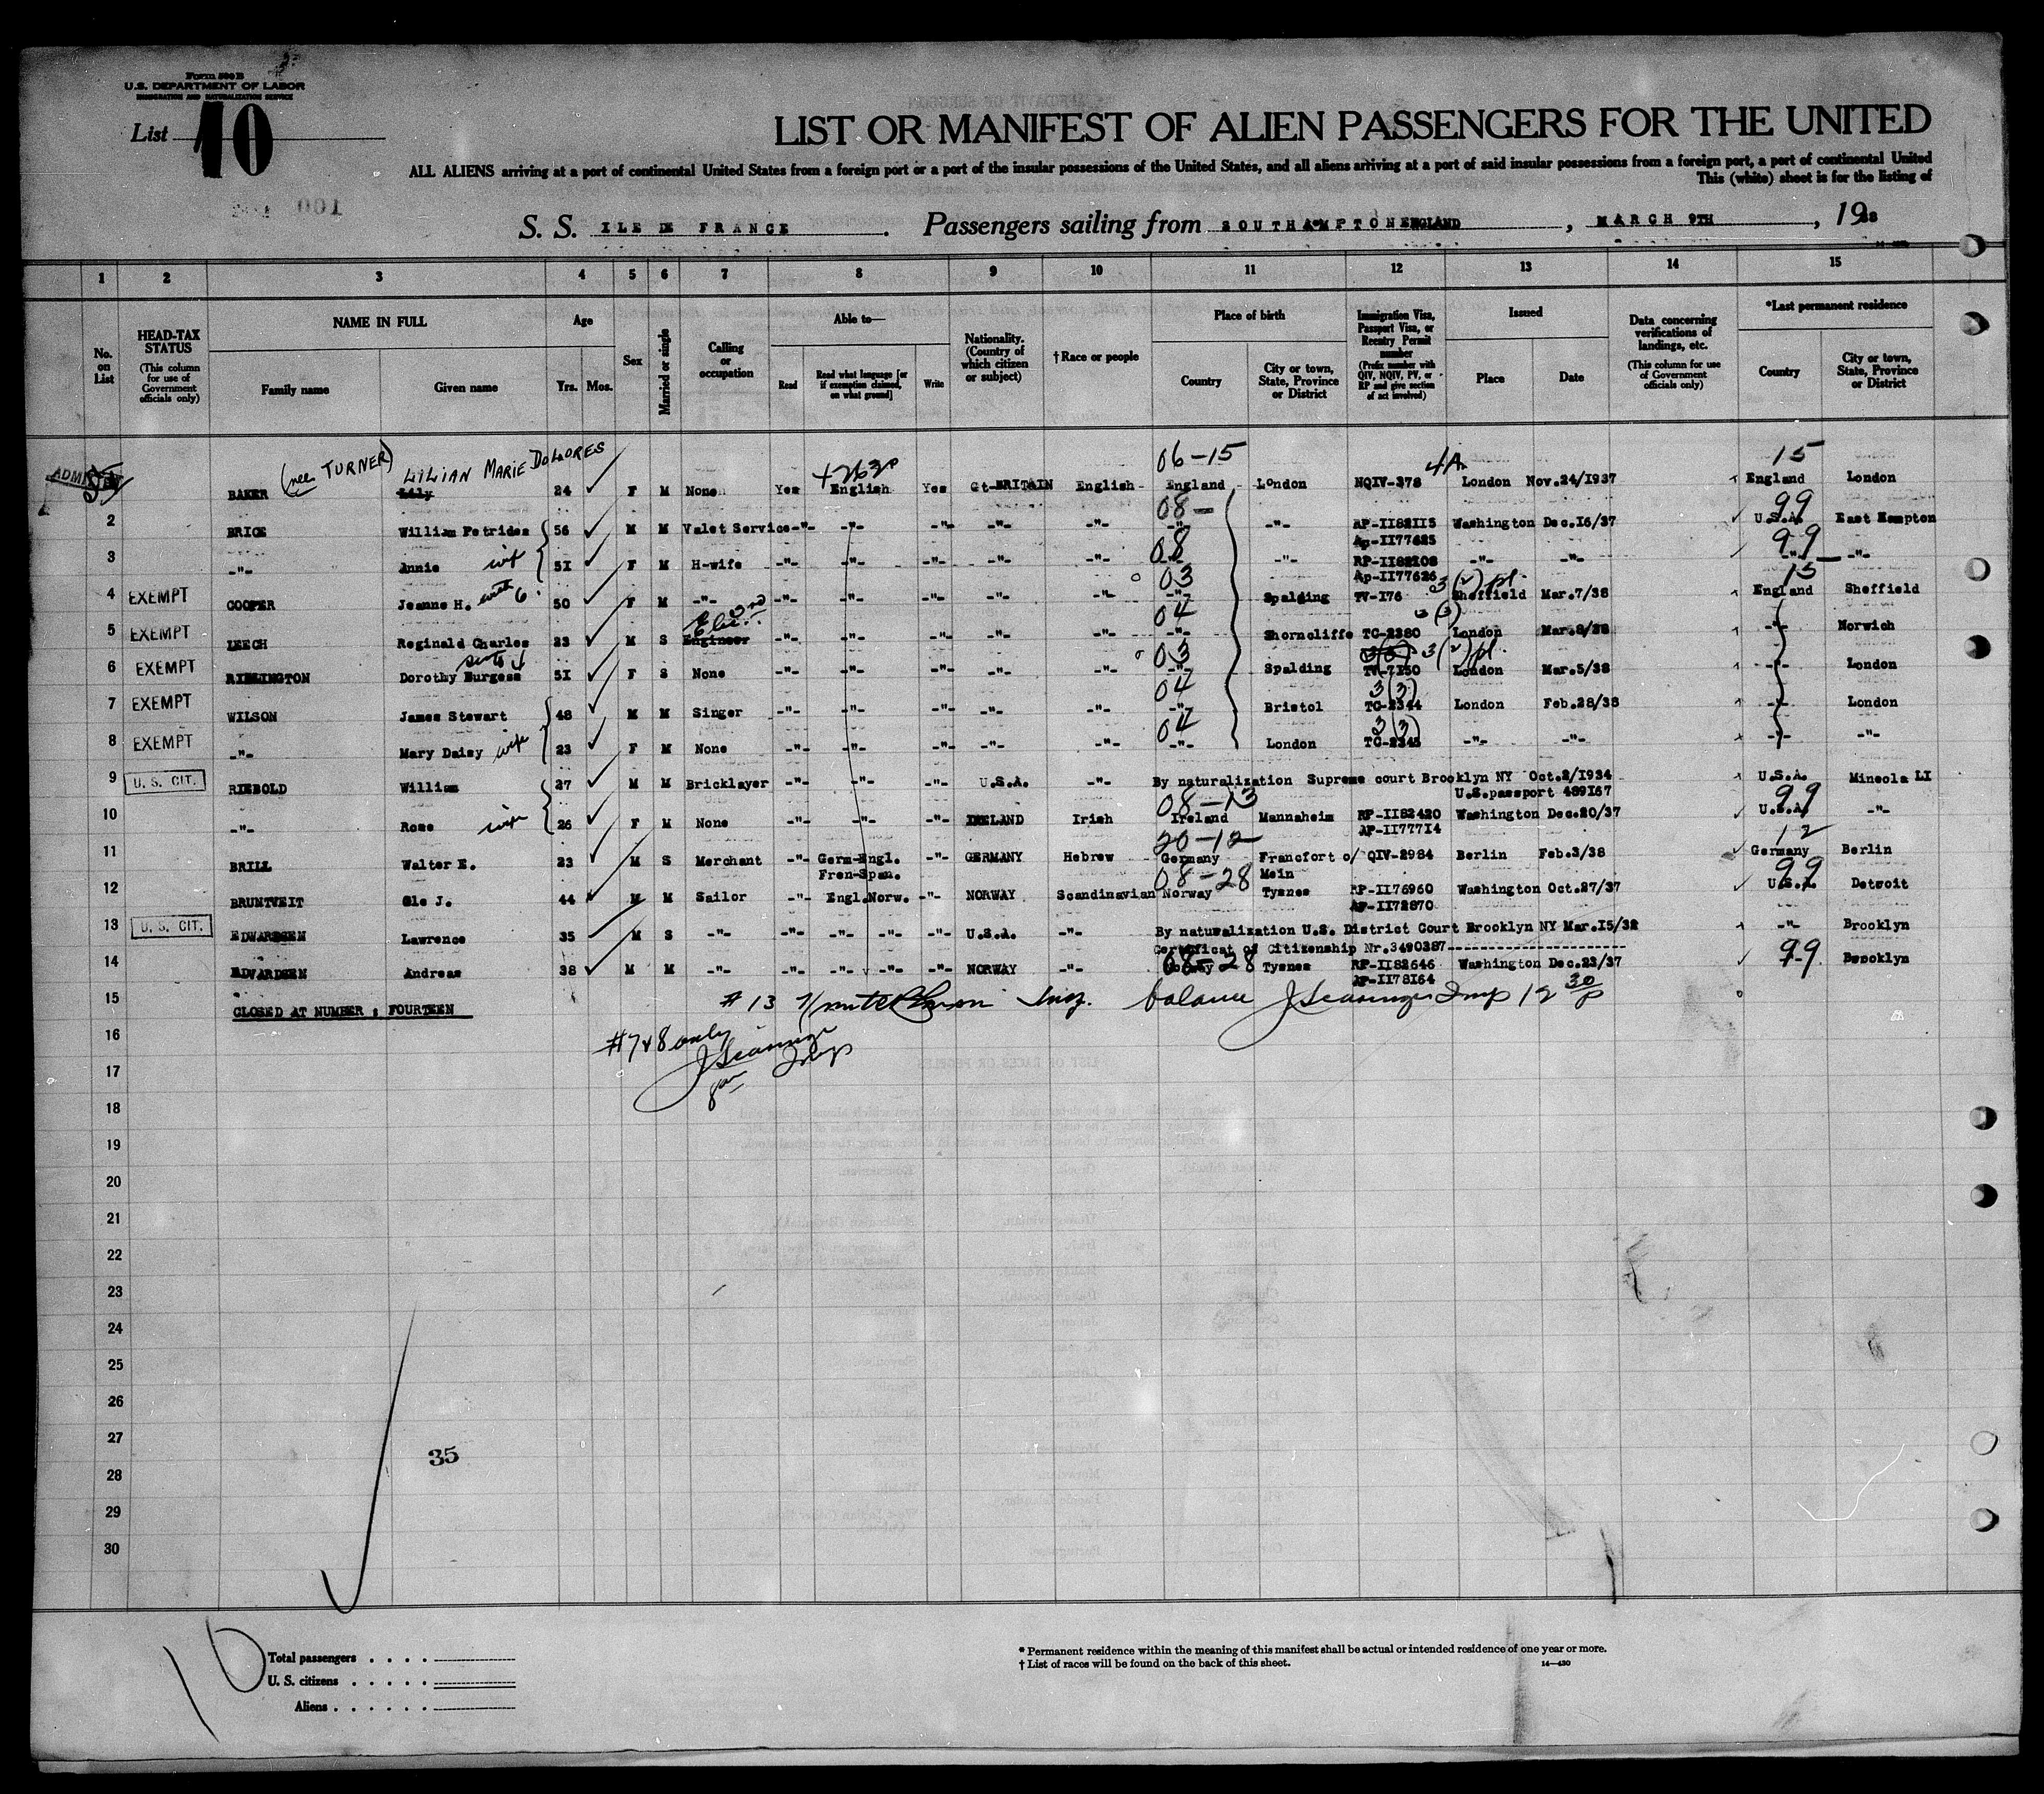 Form 500 B
U.S. DEPARTMENT OF LABOR
IMMIGRATION AND NATURALIZATION SERVICE
List 10
LIST OR MANIFEST OF ALIEN PASSENGERS FOR THE UNITED
ALL ALIENS arriving at a port of continental United States from a foreign port or a port of the insular possessions of the United States, and all aliens arriving at a port of said insular possessions from a foreign port, a port of continental United
This (white) sheet is for the listing of
S. S. ILE DE FRANCE . Passengers sailing from SOUTHAMPTON ENGLAND , MARCH 9TH , 1938
1 2 3 4 5 6 7 8 9 10 11 12 13 14 15
No. on List
HEAD-TAX STATUS (This column for use of Government officials only)
NAME IN FULL Family name Given name
Age Yrs. Mos.
Sex
Married or single
Calling or occupation
Able to— Read Read what language [or if exemption claimed, on what ground] Write
Nationality. (Country of which citizen or subject)
†Race or people
Place of birth Country City or town, State, Province or District
Immigration Visa, Passport Visa, or Reentry Permit number (Prefix number with QIV, NQIV, PV, or RP and give section of act involved)
Issued Place Date
Data concerning verifications of landings, etc. (This column for use of Government officials only)
*Last permanent residence Country City or town, State, Province or District
(nee TURNER) LILIAN MARIE DOLORES 06-15 4A 15
ADMITTED BAKER Lily 24 F M None Yes English Yes Gt-BRITAIN English England London NQIV-378 London Nov.24/1937 England London
08- 99
2 BRICE William Petrides 56 M M Valet Service -"- -"- -"- -"- -"- -"- -"- RP-II82II5 Washington Dec.I6/37 U.S.A. East Hampton
Ap-II77625
08 99
3 -"- Annie wife 5I F M H-wife -"- -"- -"- -"- -"- -"- -"- RP-II82I08 -"- -"- -"- -"-
Ap-II77626
03 3(2) pl. 15
4 EXEMPT COOPER Jeanne H. with 6 50 F M -"- -"- -"- -"- -"- -"- -"- Spalding TV-I76 Sheffield Mar.7/38 England Sheffield
Elec. 04 3(3)
5 EXEMPT LEECH Reginald Charles 23 M S Engineer -"- -"- -"- -"- -"- -"- Shorncliffe TC-2380 London Mar.8/38 -"- Norwich
03 3(3) 3(2) pl.
6 EXEMPT Dorothy Burgess 5I F S None -"- -"- -"- -"- -"- -"- Spalding TV-7I50 London Mar.5/38 -"- London
04 3(3)
7 EXEMPT WILSON James Stewart 48 M M Singer -"- -"- -"- -"- -"- -"- Bristol TC-2344 London Feb.28/38 -"- London
04 3(3)
8 EXEMPT -"- Mary Daisy wife 23 F M None -"- -"- -"- -"- -"- -"- London TC-2345 -"- -"- -"- -"-
9 U. S. CIT. RIEBOLD William 27 M M Bricklayer -"- -"- -"- U.S.A. -"- By naturalization Supreme court Brooklyn NY Oct.2/I934 U.S.A. Mineola LI
U.S.passport 489I67
08-13 99
10 -"- Rose wife 26 F M None -"- -"- -"- IRELAND Irish Ireland Mannaheim RP-II82420 Washington Dec.20/37 U.S.A. -"-
AP-II777I4
20-12 12
11 BRILL Walter E. 23 M S Merchant -"- Germ-Engl. -"- GERMANY Hebrew Germany Francfort o/ QIV-2984 Berlin Feb.3/38 Germany Berlin
Fren-Span. Mein
08-28 99
12 BRUNTVEIT Ole J. 44 M M Sailor -"- Engl.Norw. -"- NORWAY Scandinavian Norway Tysnes RP-II76960 Washington Oct.27/37 U.S.A. Detroit
AP-II72870
13 U. S. CIT. EDWARDSEN Lawrence 35 M S -"- -"- -"- -"- -"- U.S.A. -"- By naturalization U.S. District Court Brooklyn NY Mar.I5/32 -"- Brooklyn
Certificat of Citizenship Nr.3490387
08-28 99
14 EDWARDSEN Andreas 38 M M -"- -"- -"- -"- -"- NORWAY -"- Norway Tysnes RP-II82646 Washington Dec.23/37 Brooklyn
AP-II78I64
15 # 13 Insp. balance Insp 12 30 p
CLOSED AT NUMBER ; FOURTEEN
16 #7 & 8 only
17
18
19
20
21
22
23
24
25
26
27
35
28
29
30
10
Total passengers . . . .
U. S. citizens . . . . .
Aliens . . . . . .
* Permanent residence within the meaning of this manifest shall be actual or intended residence of one year or more.
† List of races will be found on the back of this sheet.
14—430